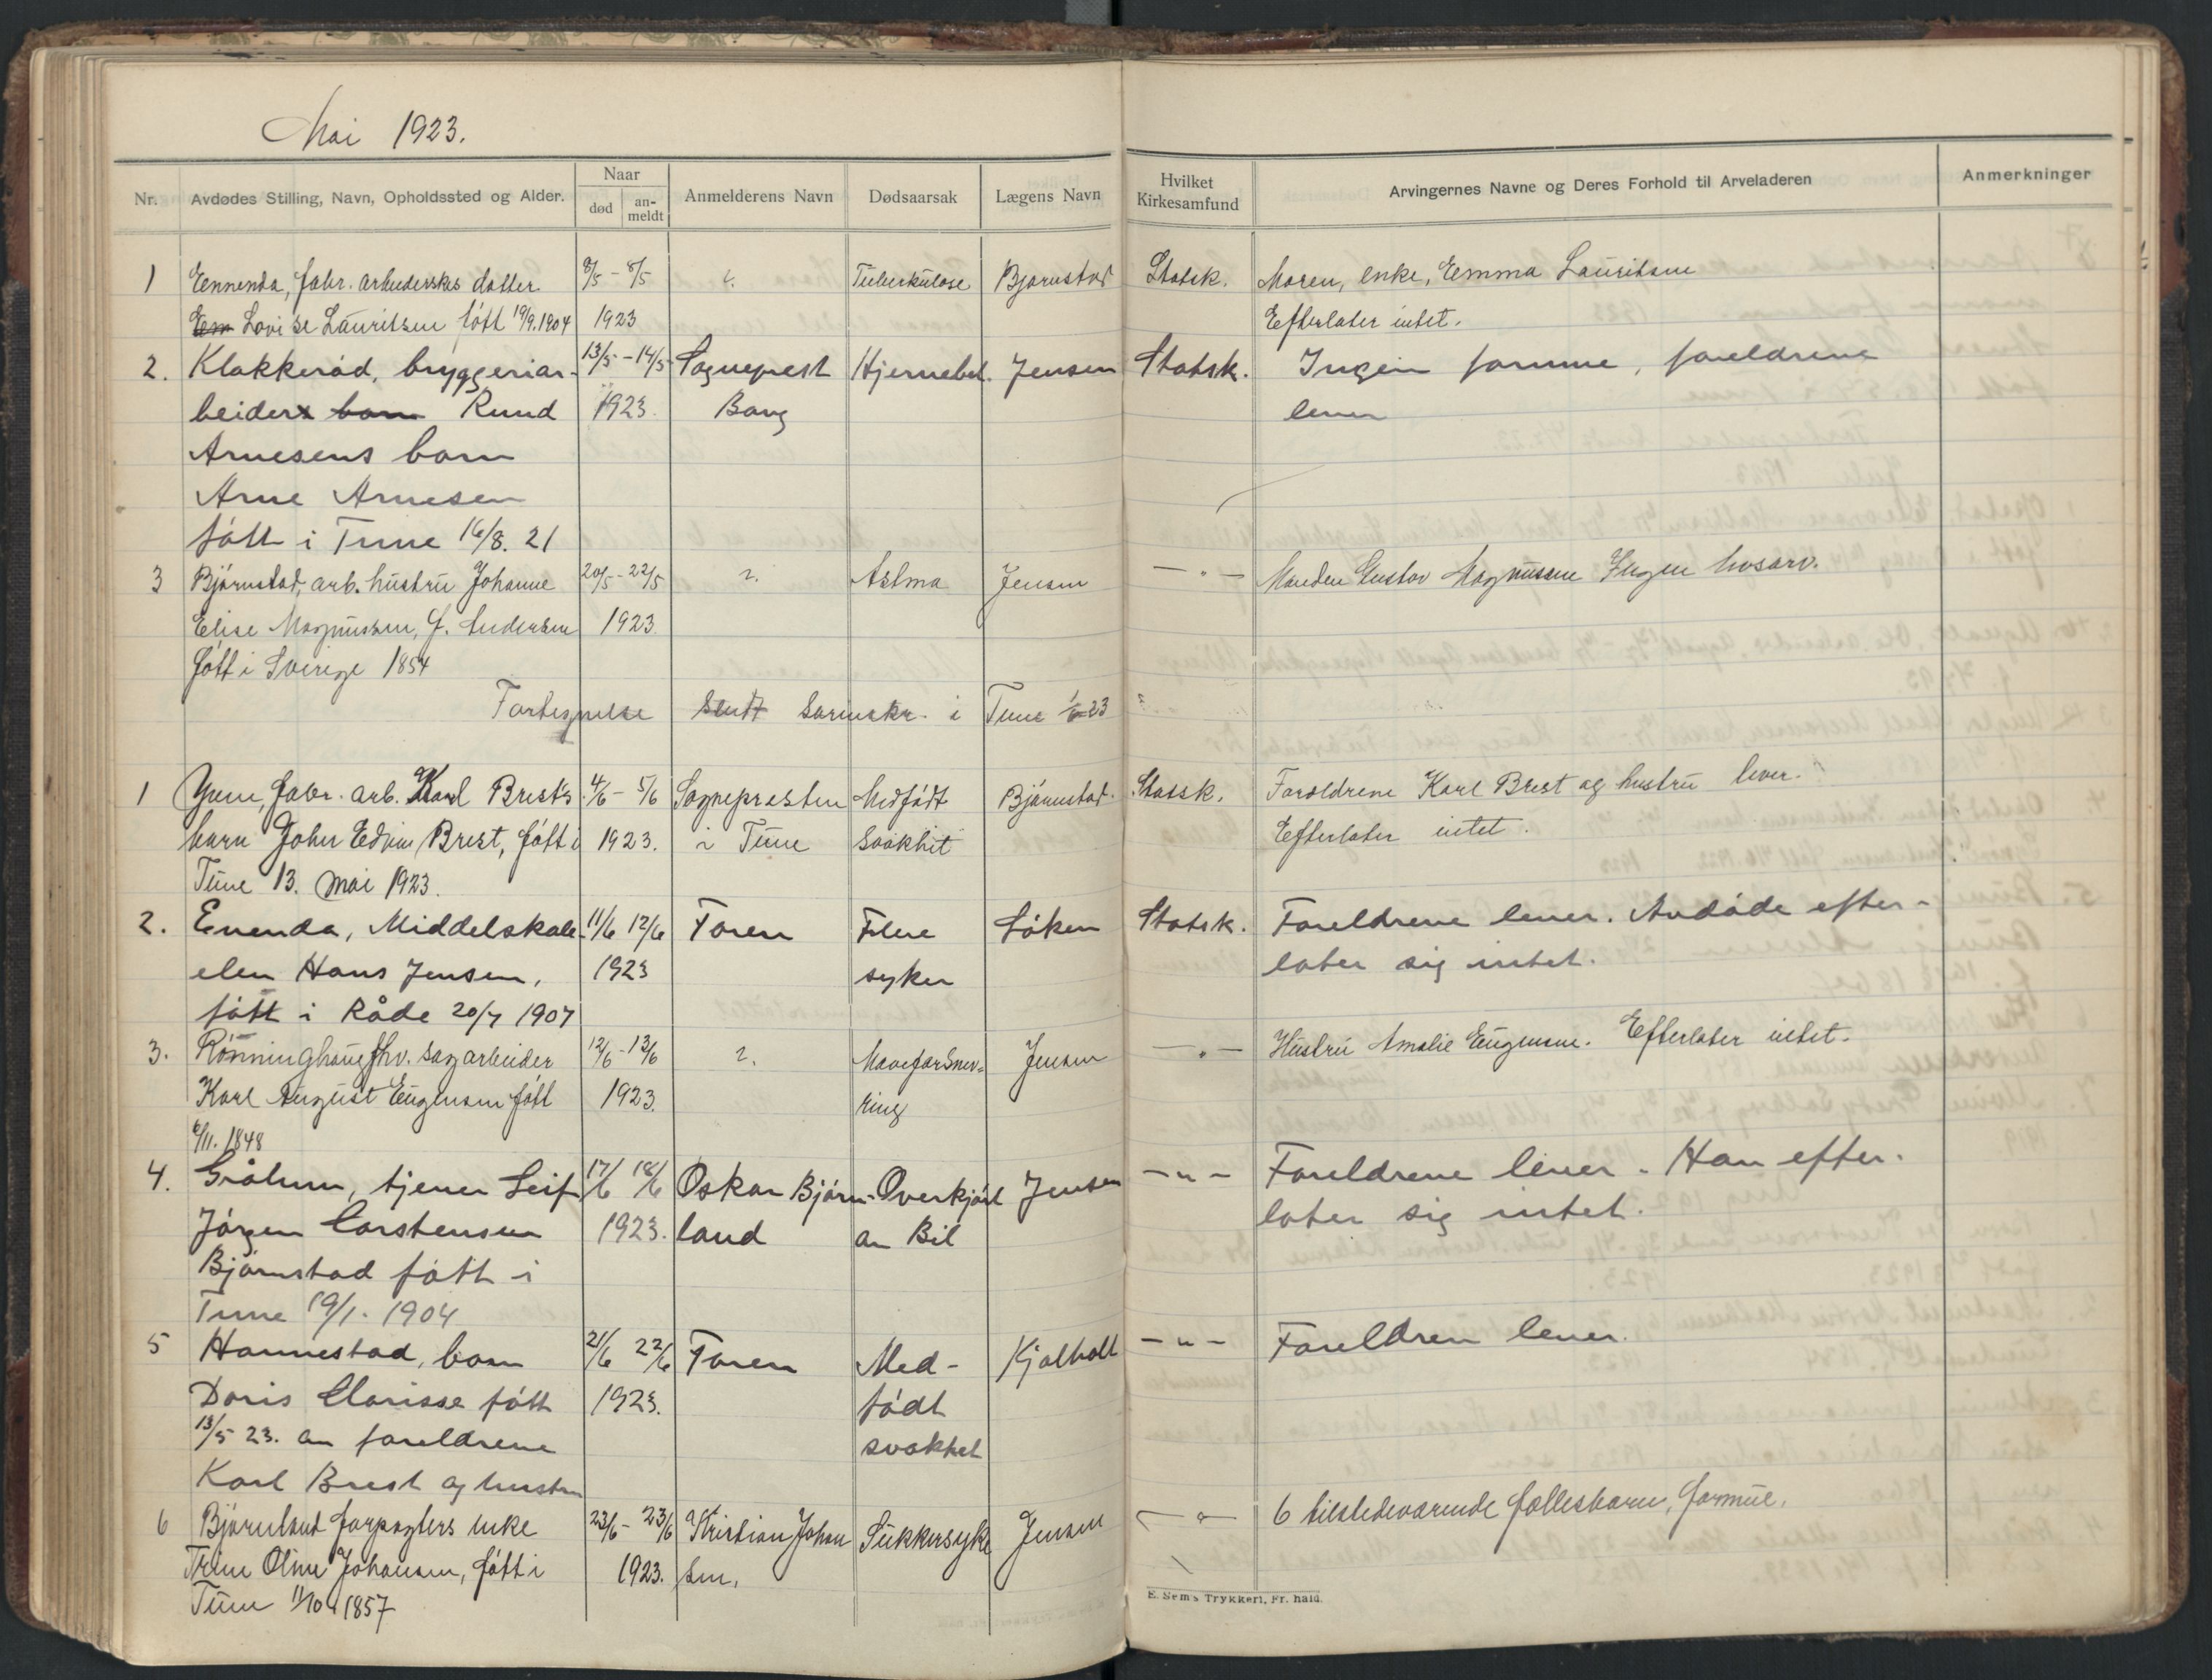 Mai 1923.
Nr. Avdødes Stilling, Navn, Opholdssted og Alder. Naar død an-meldt Anmelderens Navn Dødsaarsak Lægens Navn Hvilket Kirkesamfund Arvingernes Navne og Deres Forhold til Arveladeren Anmerkninger
1 Ennenda, fabr. arbeiderskes datter 8/5 - 8/5 Tuberkulose Bjørnstad Statsk. Moren, enke, Emma Lauritsen
Em Lovise Lauritsen født 19/9.1904 1923 Efterlater intet.
2. Klakkerød, bryggeriar- 13/5 - 14/5 Sogneprest Hjernebet. Jensen Statsk. Ingen formue, foreldrene
beider barn Knud 1923. Bang lever
Arnesens barn
Arne Arnesen
født i Tune 16/8. 21
3 Bjørnstad, arb. hustru Johanne 20/5 - 22/5 Astma Jensen — " — Manden Gustav Magnussen Ingen livsarv.
Elise Magnussen, f. Andersen 1923.
født i Sverige 1854
Fortegnelse sendt sorenskr. i Tune 1/6 23
1 Yven, fabr. arb. Karl Brests 4/6 - 5/6 Sognepresten Medfødt Bjørnstad. Statsk. Forældrene Karl Brest og hustru lever.
barn John Edvin Brest, født i 1923. i Tune svakhet Efterlater intet.
Tune 13. mai 1923.
2. Enenda, Middelskole- 11/6 12/6 Faren Flere Løken Statsk. Foreldrene lever. Avdøde efter-
elev Hans Jensen, 1923 syker later sig intet.
født i Råde 20/7 1907
3. Rønninghaug fhv. sagarbeider 12/6 - 13/6 Maveforsnev- Jensen — " — Hustru Amalie Eugensen. Efterlater intet.
Karl August Eugensen født 1923. ring
6/11. 1848
4. Grålum, tjener Leif 17/6 18/6 Oskar Bjørn- Overkjørt Jensen — " — Foreldrene lever. Han efter-
Jørgen Carstensen 1923. land av Bil later sig intet.
Bjørnstad født i
Tune 19/1. 1904
5 Hannestad, barn 21/6 22/6 Faren Med- Kjølholt — " — Foreldren lever.
Doris Clarisse født 1923. født
13/5 23. av foreldrene svakhet
Karl Brest og hustru
6 Bjørnland forpagters enke 23/6 - 23/6 Kristian Johan Sukkersyke Jensen — " — 6 tilstedeværende fællesbarn, formue.
Trine Oline Johansen, født i 1923. sen.
Tune 11/10 1857
E. Sem's Trykkeri, Fr. hald.